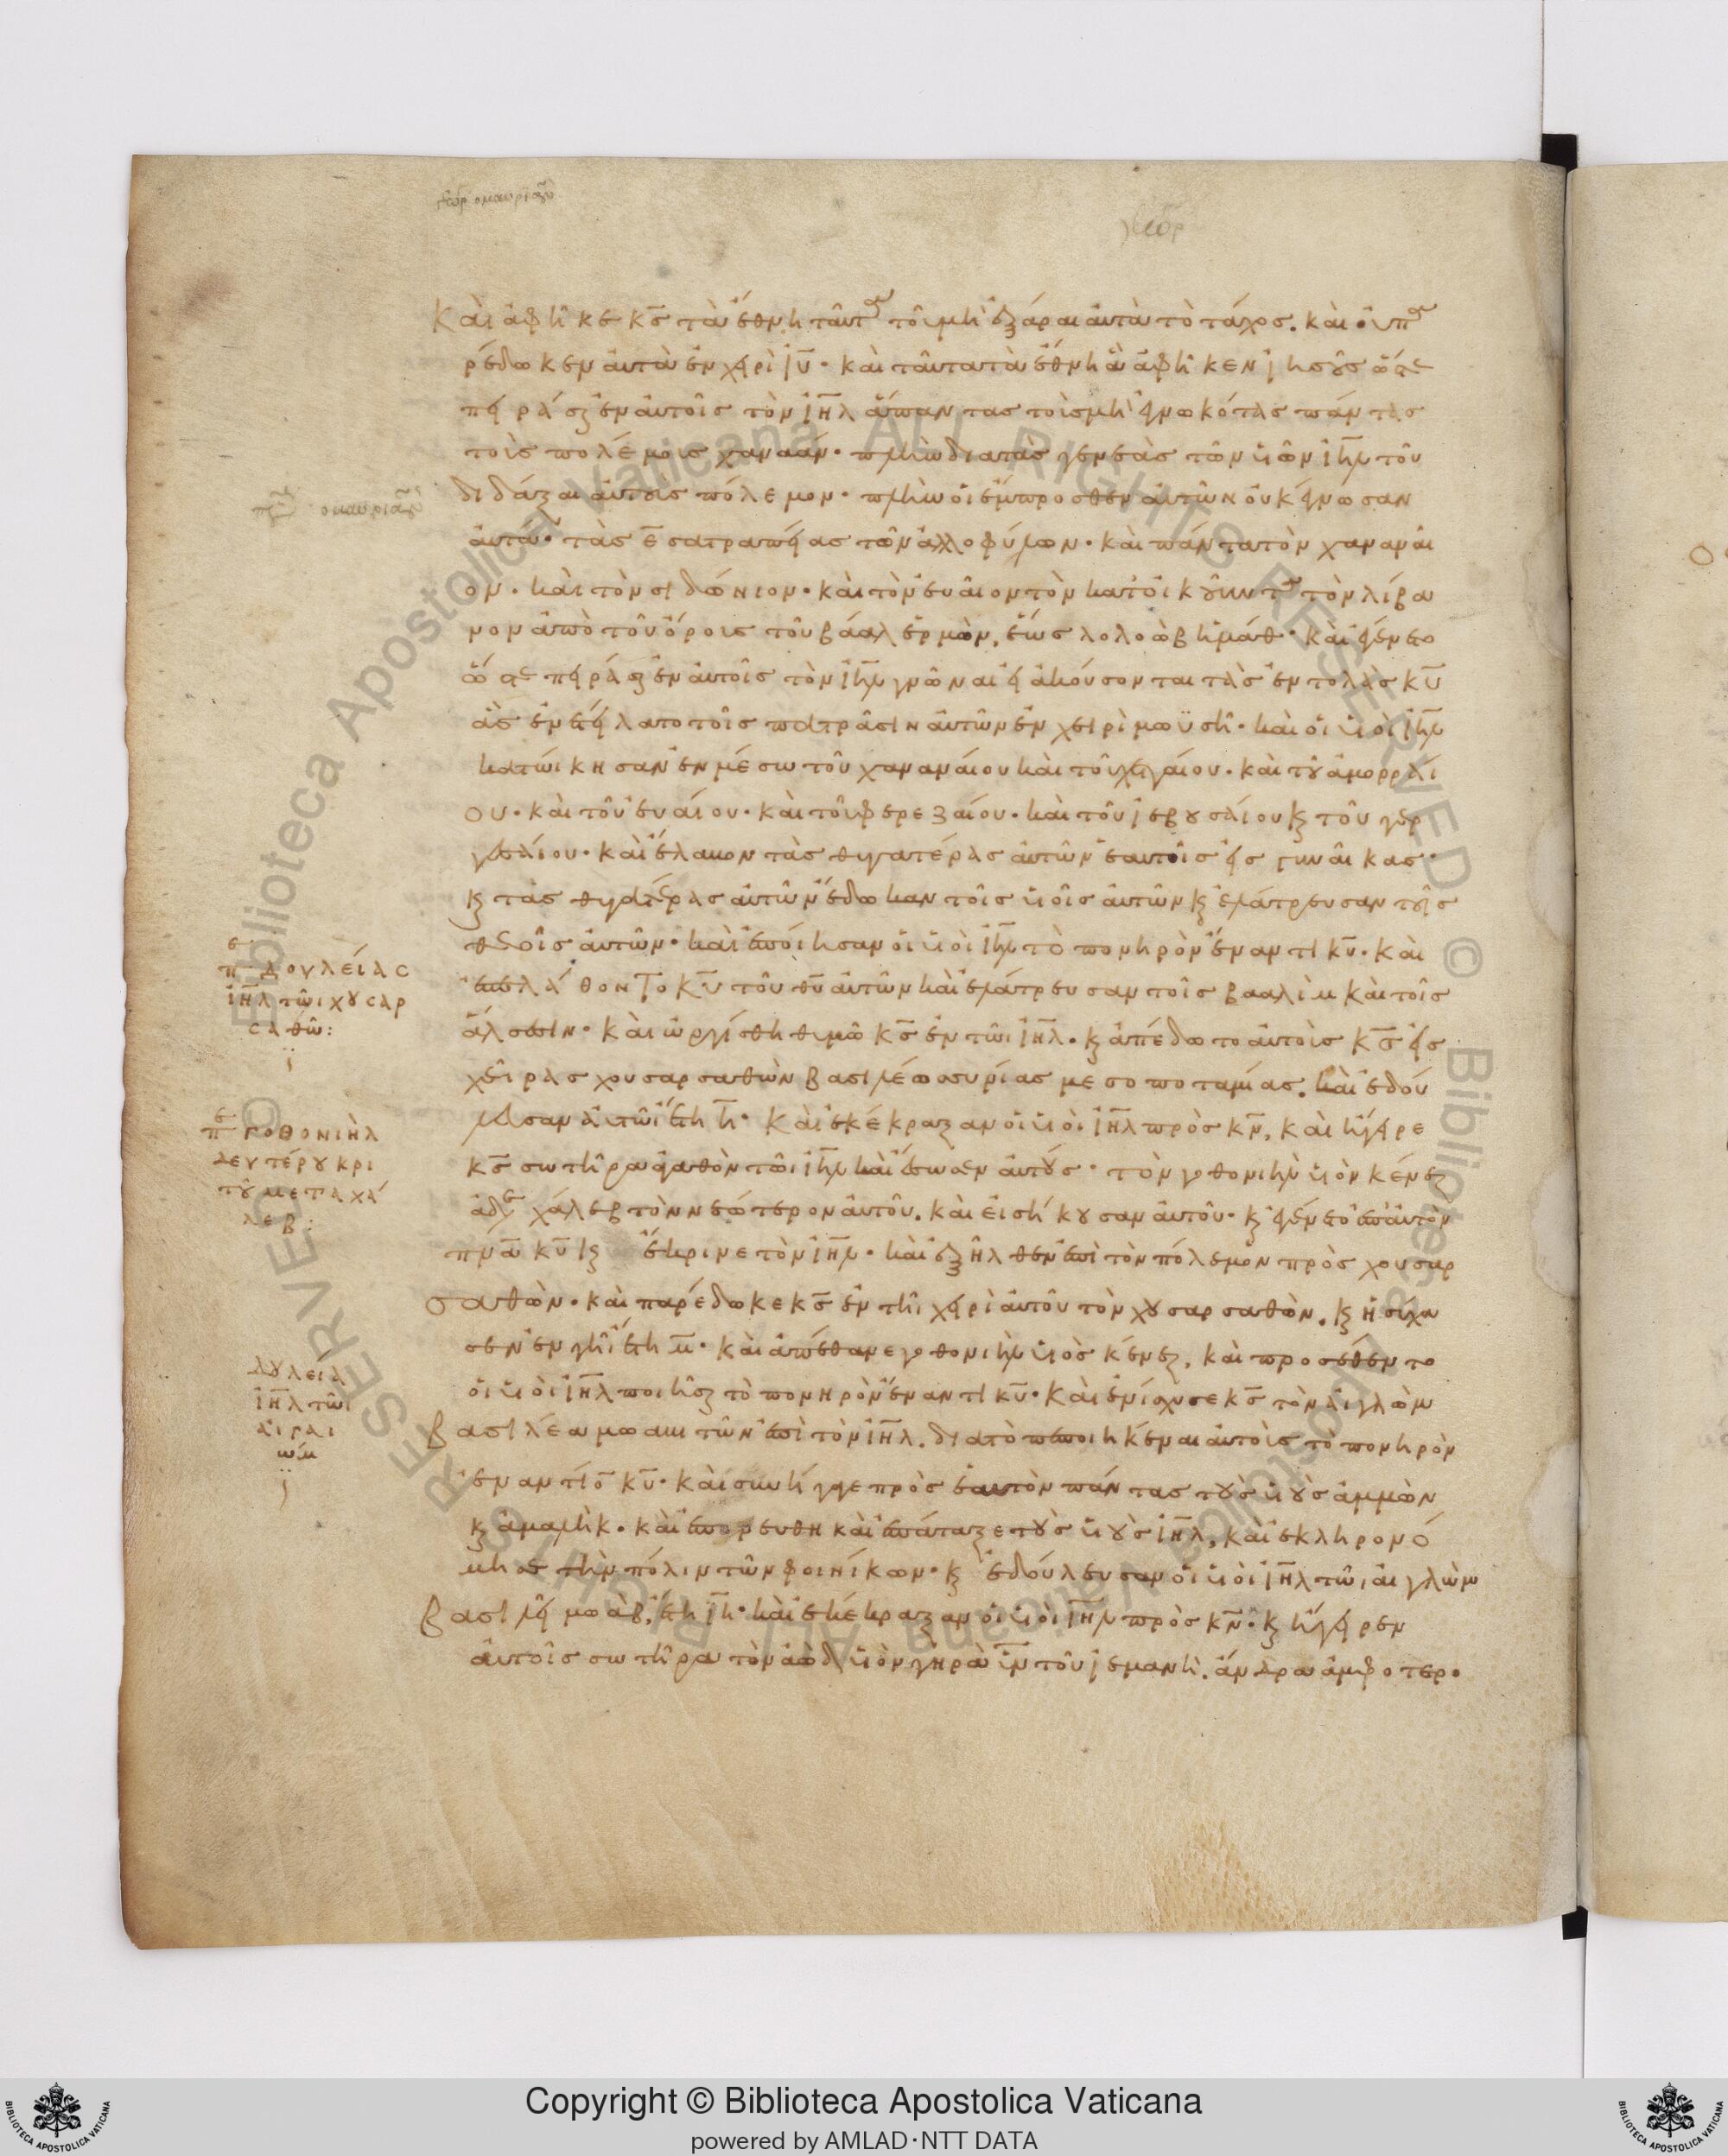 Καὶ ἀφῆκε κ̅ς̅ τὰ ἔθνη ταῦτα τοῦ μὴ ἐξάραι αὐτὰ τὸ τάχος. καὶ οὐ πα
ρέδωκεν αὐτὰ ἐν χειρὶ ι̅υ̅· καὶ ταῦτα τὰ ἔθνη ἃ ἀφῆκεν ἰησοῦς ὥστε
πειράσαι ἐν αὐτοῖς τὸν ι̅η̅λ̅ ἅπαντας τοὺς μὴ ἐγνωκότας πάντας
τοὺς πολέμους χαναάν· πλὴν διὰ τὰς γενεὰς τῶν υἱῶν ι̅η̅λ̅ τοῦ
διδάξαι αὐτοὺς πόλεμον· πλὴν οἱ ἔμπροσθεν αὐτῶν οὐκ ἔγνωσαν
αὐτά· τὰς ε̅ σατραπείας τῶν ἀλλοφύλων· καὶ πάντα τὸν χαναναῖ
ον· καὶ τὸν σιδώνιον· καὶ τὸν εὐαῖον τὸν κατοικοῦντα τὸν λίβα
νον ἀπὸ τοῦ ὄρους τοῦ βάαλ ἑρμὼν, ἕως λολοὼβ ἡμάθ· καὶ ἐγένετο
ὥστε πειράσαι ἐν αὐτοῖς τὸν ι̅η̅λ̅ γνῶναι εἰ ἀκούσονται τὰς ἐντολὰς κ̅υ̅
ἃς ἐνετείλατο τοῖς πατράσιν αὐτῶν ἐν χειρὶ μωϋσῆ· καὶ οἱ υἱοὶ ι̅η̅λ̅
κατώικησαν ἐν μέσω τοῦ χαναναίου καὶ τοῦ χετταίου· καὶ τοῦ ἀμορραί
ου· καὶ τοῦ εὐαίου· καὶ τοῦ φερεζαίου· καὶ τοῦ ἰεβουσαίου κ τοῦ γερ
γεσαίου· καὶ ἔλαβον τὰς θυγατέρας αὐτῶν ἑαυτοῖς εἰς γυναῖκας·
κ τὰς θυγατέρας αὐτῶν ἔδωκαν τοῖς υἱοῖς αὐτῶν κ ἐλάτρευσαν τοῖς
θεοῖς αὐτῶν· καὶ ἐποίησαν οἱ υἱοὶ ι̅η̅λ̅ τὸ πονηρὸν ἔναντι κ̅υ̅· καὶ
ἐπελάθοντο κ̅υ̅ τοῦ θ̅υ̅ αὐτῶν καὶ ἐλάτρευσαν τοῖς βααλὶμ καὶ τοῖς
ἄλσεσιν· καὶ ὠργίσθη θυμῶ κ̅ς̅ ἐν τῶι ι̅η̅λ̅. κ ἀπέδωτο αὐτοὺς κ̅ς̅ εἰς
χεῖρας χουσαρσαθὼν βασιλέως συρίας μεσοποταμίας. καὶ ἐδού
λευσαν αὐτῶι ἔτη η̅· Καὶ ἐκέκραξαν οἱ υἱοὶ ι̅η̅λ̅ πρὸς κ̅ν̅, καὶ ἤγειρε
κ̅ς̅ σωτῆρα ἀγαθὸν τῶι ι̅η̅λ̅ καὶ ἔσωσεν αὐτούς· τὸν γοθονιὴλ υἱὸν κένεζ
ἀδελφοῦ χάλεβ τὸν νεώτερον αὐτοῦ. καὶ εἰσήκουσαν αὐτοῦ· κ ἐγένετο ἐπ' αὐτὸν
π̅ν̅α̅ κ̅υ̅ κ ἔκρινε τὸν ι̅η̅λ̅· καὶ ἐξῆλθεν ἐπὶ τὸν πόλεμον πρὸς χουσαρ
σαθὼν· καὶ παρέδωκε κ̅ς̅ ἐν τῆι χειρὶ αὐτοῦ τὸν χουσαρσαθὼν. κ ἡσύχα
σεν ἐν γῆι ἔτη μ̅· καὶ ἀπέθανε γοθονιὴλ υἱὸς κένεζ, καὶ προσέθεντο
οἱ υἱοὶ ι̅η̅λ̅ ποιῆσαι τὸ πονηρὸν ἔναντι κ̅υ̅· καὶ ἐνίσχυσε κ̅ς̅ τὸν αἰγλὼμ
βασιλέα μωαβιτῶν ἐπὶ τὸν ι̅η̅λ̅. διὰ τὸ πεποιηκέναι αὐτοὺς τὸ πονηρὸν
ἐναντίον κ̅υ̅· καὶ συνήγαγε πρὸς ἑαυτὸν πάντας τοὺς υἱοὺς ἀμμὼν
κ ἀμαλὴκ· καὶ ἐπορεύθη καὶ ἐπάταξε τοὺς υἱοὺς ι̅η̅λ̅, καὶ ἐκληρονό
μησε τὴν πόλιν τῶν φοινίκων· κ ἐδούλευσαν οἱ υἱοὶ ι̅η̅λ̅ τῶι αἰγλὼμ
βασιλεῖ μωάβ, ἔτη ι̅η̅· καὶ ἐκέκραξαν οἱ υἱοὶ ι̅η̅λ̅ πρὸς κ̅ν̅· κ ἤγειρεν
αὐτοῖς σωτῆρα τὸν ἀὼδ υἱὸν γηρὰ υἱὸν τοῦ ἰεμανὴ. ἄνδρα ἀμφοτερο
πε δουλείας
ι̅η̅λ̅ τῶι χουσαρ
σαθῶ:
πε γοθονιὴλ
δευτέρου κρι
τοῦ μετὰ χά
λεβ:
δουλεία
ι̅η̅λ̅ τῶι
Copyright © Biblioteca Apostolica Vaticana
powered by AMLAD·NTT DATA